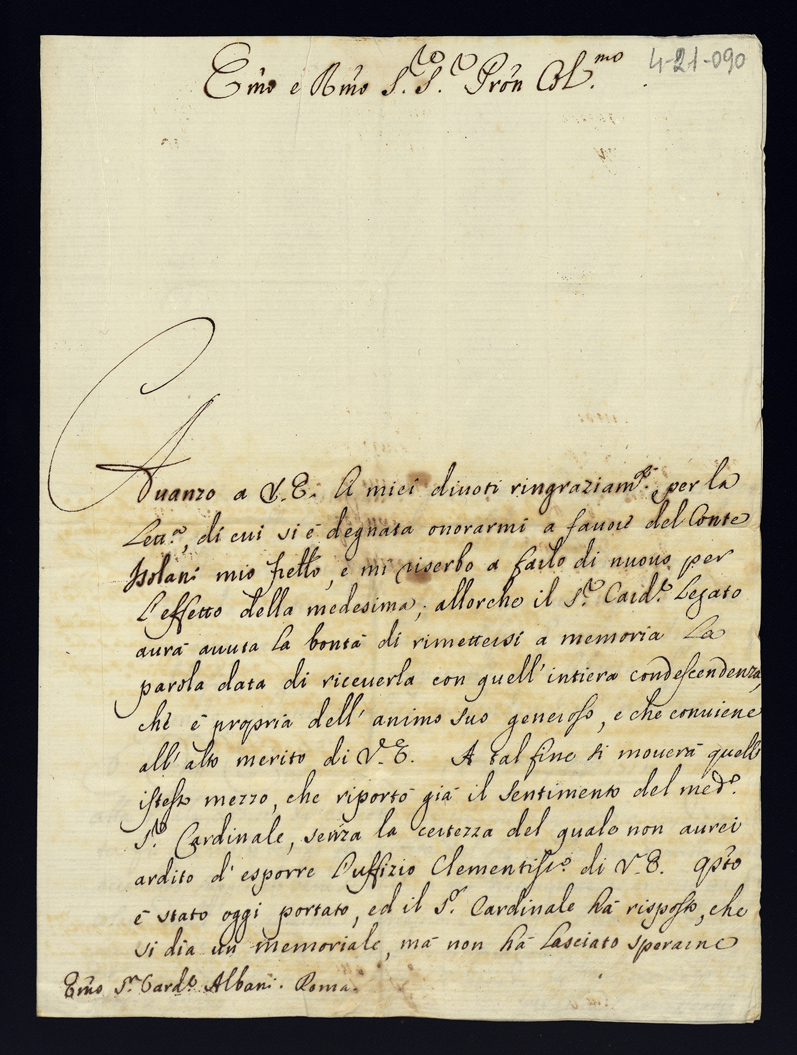 4-21-090
Em̃o e Rm̃o S.re S.r Prõn Col.mo
Auanzo a V.E. i miei diuoti ringraziam.ti per la
Lett.a, di cui si è degnata onorarmi a fauore del Conte
Isolani mio frẽllo, e mi riserbo a farlo di nuouo per
l'effetto della medesima, allorche il S.r Card.le Legato
aurà auuta la bontà di rimettersi a memoria la
parola data di riceuerla con quell'intiera condescendenza,
che è propria dell'animo suo generoso, e che conuiene
all'alto merito di V.E. A tal fine si mouerà quell'
istesso mezzo, che riportò già il sentimento del med.o
S.r Cardinale, senza la certezza del quale non aurei
ardito d'esporre l'uffizio Clementiss.o di V.E. Qsto
è stato oggi portato, ed il S.r Cardinale hà risposto, che
si dia un memoriale, mà non hà lasciato sperarne
Em̃o S.r Card.le Albani. Roma.